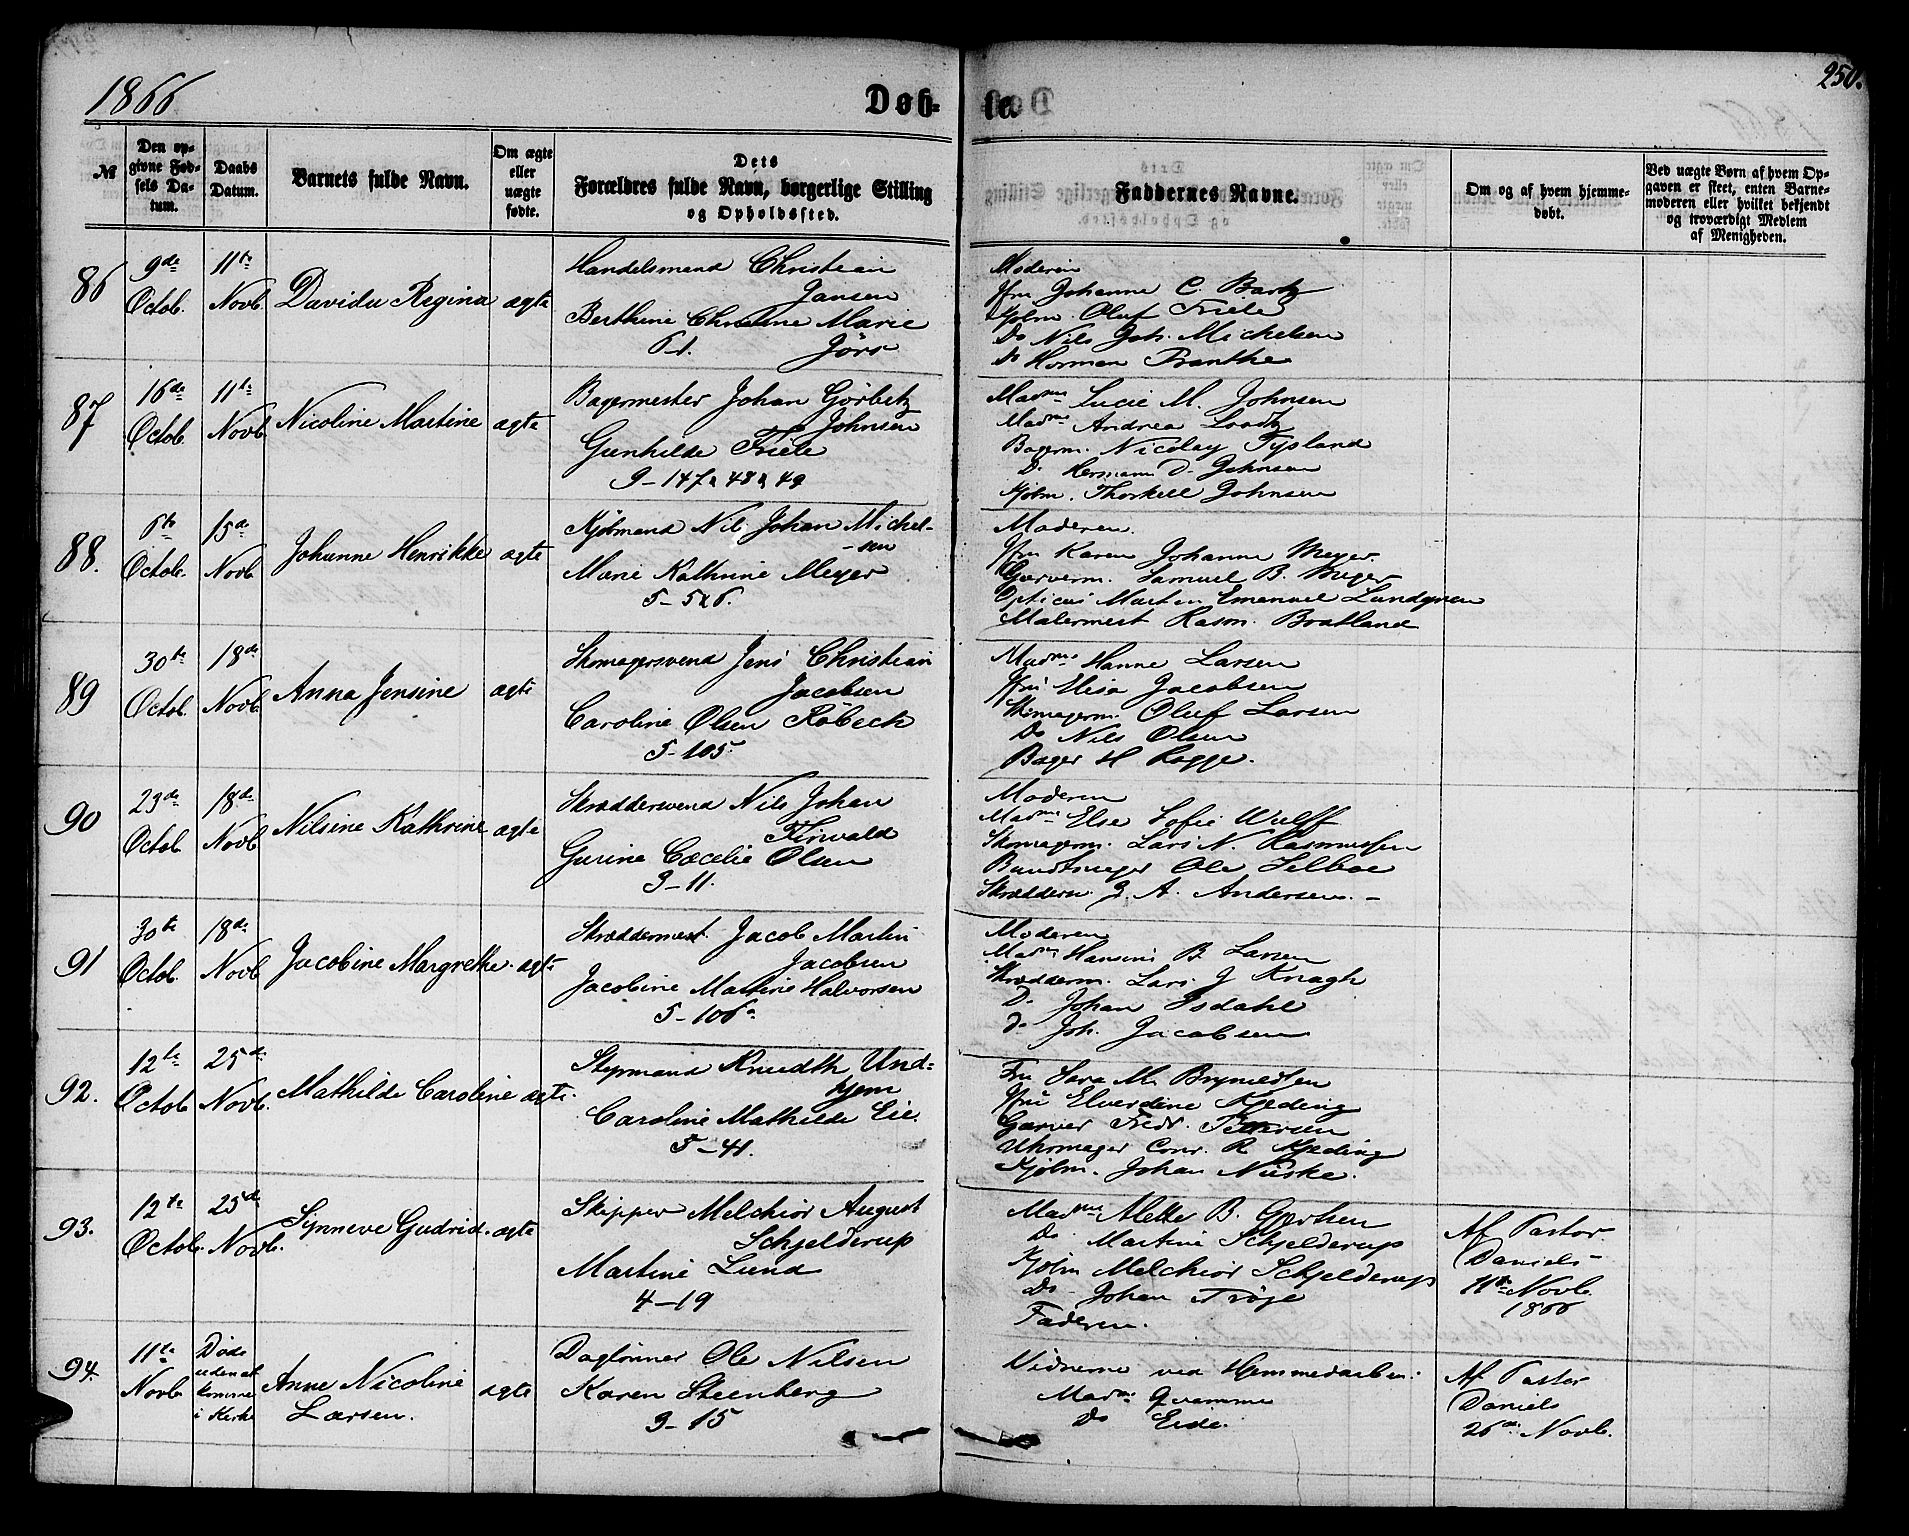 1866
Døb-
te.
250.
№
Den op-
givne Fød-
sels Da-
tum.
Daabs
Datum.
Barnets fulde Navn.
Om ægte
eller
uægte
fødte.
Dets
Forældres fulde Navn, borgerlige Stilling
og Opholdssted.
Faddernes Navne.
Om og af hvem hjemme-
døbt.
Ved uægte Børn af hvem Op-
gaven er skeet, enten Barne-
moderen eller hvilket bekjendt
og troværdigt Medlem
af Menigheden.
86
9de
Octob.
11te
Novb.
Davida Regina
ægte
Handelsmand Christian
Jansen
Berthine Christine Marie
Jörs
6-1.
Moderen
Jfru Johanne C. Bartz
Kjøbm. Oluf Friele
Do Nils Joh. Michelsen
Do Herman Franthe
87
16de
Octob.
11te
Novb.
Nicoline Martine
ægte
Bagermester Johan Görbitz
Johnsen
Gunhilde Friele
9-147a 48a 49
Madme Lucie M. Johnsen
Madme Andrea Loodtz
Bagerm. Nicolay Tysland
Do Hermann D. Johnsen
Kjøbm. Thorkell Johnsen
88.
6te
Octob.
15de
Novb.
Johanne Henrikke
ægte
Kjøbmand Nil. Johan Michel-
-sen
Marie Kathrine Meyer
5-5a6.
Moderen.
Jfru Karen Johanne Meyer.
Garverm. Samuel B. Meyer
Opticus Martin Emanuel Lundgreen
Malermest Rasm. Bratland
89
30te
Octob.
18de
Novb.
Anna Jensine
ægte
Skomagersvend Jens Christian
Jacobsen
Caroline Olsen Röbeck
5-105.
Madme Hanne Larsen
Jfru Elisa Jacobsen
Skomagerm. Oluf Larsen
Do Nils Olsen
Bager H Rogge.
90
23de
Octob.
18de
Novb.
Nilsine Kathrine
ægte
Skræddersvend Nils Johan
Finvald
Gurine Cæcelie Olsen
3-11.
Moderen
Madme Else Sofie Wulff
Skomagerm. Lars N. Rasmussen
Bundtmager Ole Selboe
Skrædderm. J. A. Andersen.-
91
30te
Octob.
18de
Novb.
Jacobine Margrethe.
ægte
Skræddermest. Jacob Martin
Jacobsen
Jacobine Martine Halvorsen
5-106a
Moderen
Madme Hansine B Larsen
Skrædderm. Lars J Knagh
Do Johan Isdahl
do Joh. Jacobsen
92.
12te
Octob
25de
Novb.
Mathilde Caroline
ægte.
Styrmand Knudth Und-
hjem
Caroline Mathilde Eie.
5-41.
Fru Sara M. Brynildsen
Jfru Elverdine Kjeding
Garver Fredr. Pettersen
Uhrmager Conr. R Kjeding
Kjøbm. Johan Nüske.
93.
12te
Octob.
25de
Novb.
Synneve Gudrid.
ægte
Skipper Melchior August
Schjelderup
Martine Lund
4-19
Madme Mette B. Gjertsen
Do Martine Schjelderup
Kjøbm Melchior Schjelderup
Do Johan Tröje
Faderen.
Af Pastor
Daniels-
11te Novb.
1866
94.
11te
Novb.
Døde
uden at
komme
i Kirke
Anne Nicoline
Larsen.
ægte
Daglönner Ole Nilsen
Karen Steenberg
3-15
Vidnerne ved Hjemmedaaben:
Madme Qvamme
Do Eide.
Af Pastor
Daniels
26de Novb.